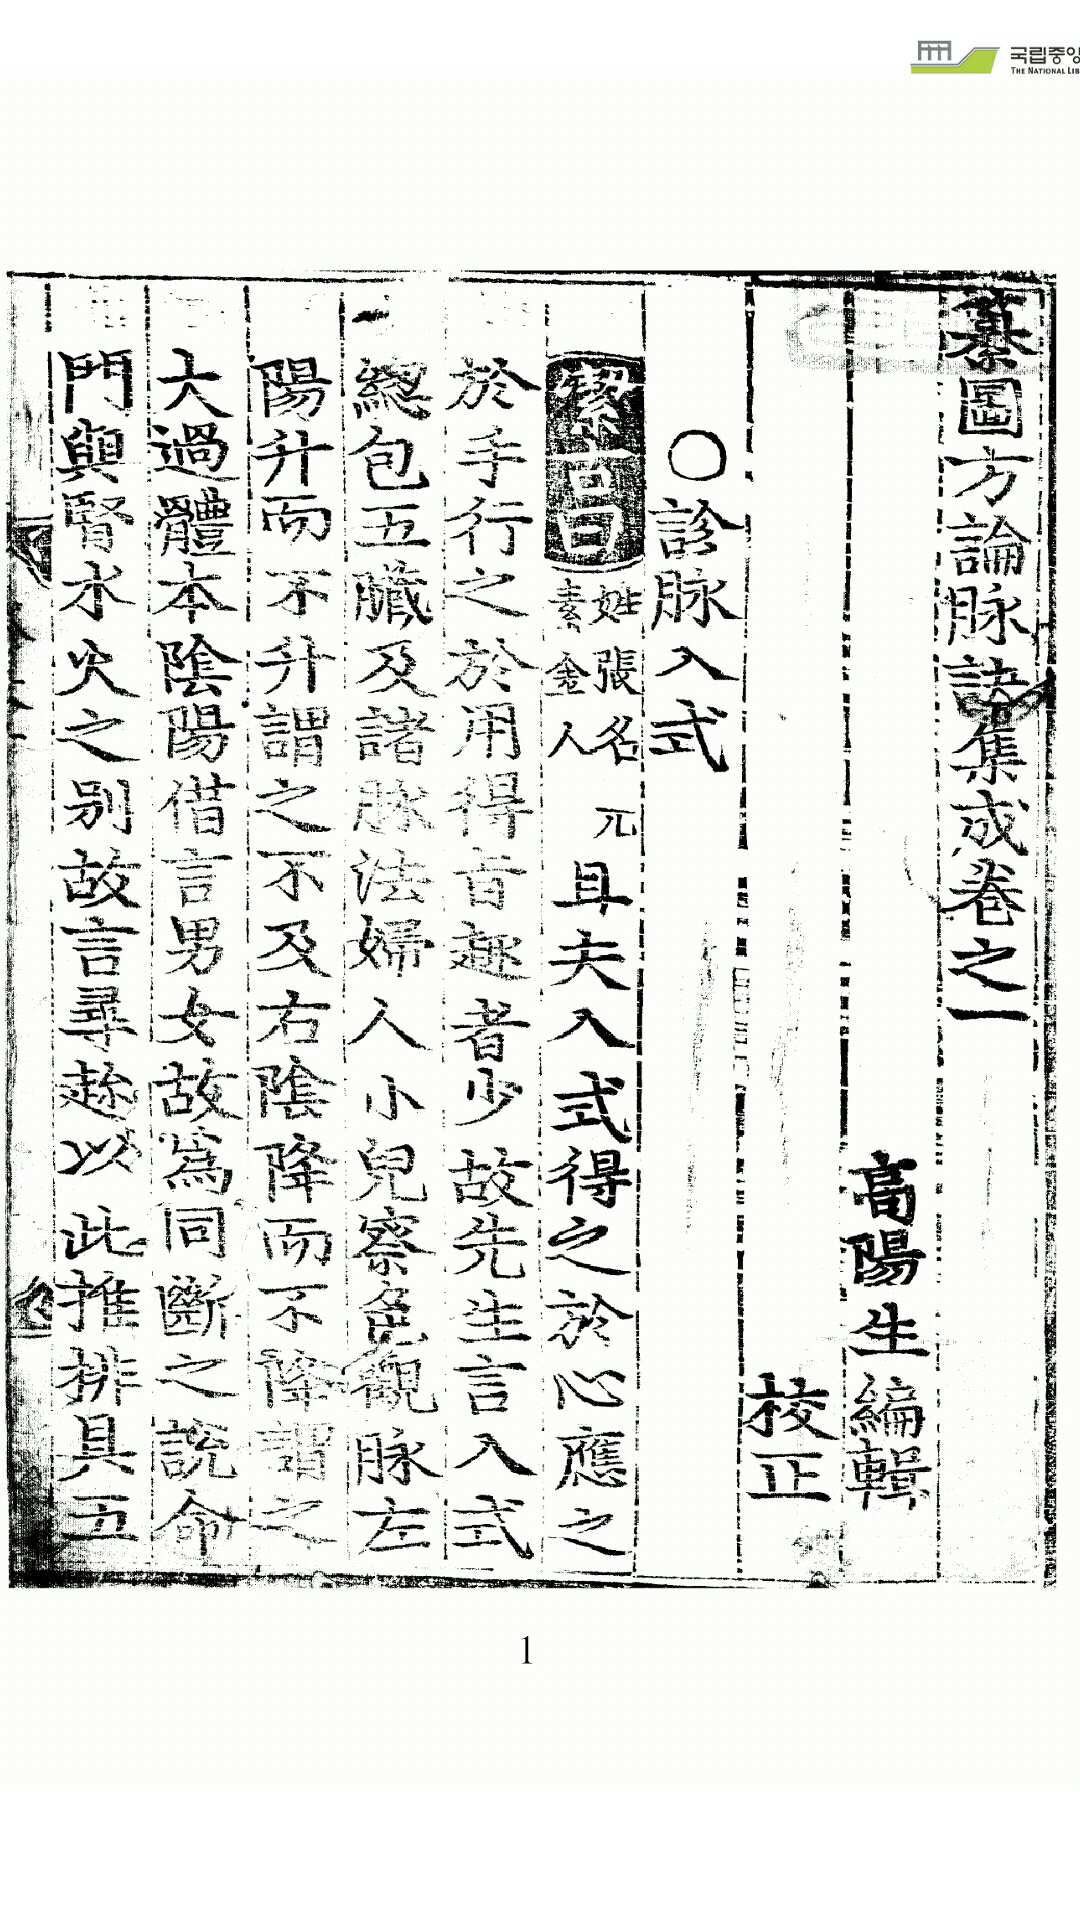 국립중앙
THE NATIONAL LIB
纂圖方論脉訣集成卷之一
高陽生編輯
校正
○診脉入式
潔古曰
姓張名元
素金人
且夫入式得之於心應之
於手行之於用得旨趣者少故先生言入式
總包五臟及諸脉法婦人小兒察色觀脉左
陽升而不升謂之不及右陰降而不降謂之
大過體本陰陽借言男女故爲同斷之說命
門與腎水火之別故言尋趂以此推排具五
1